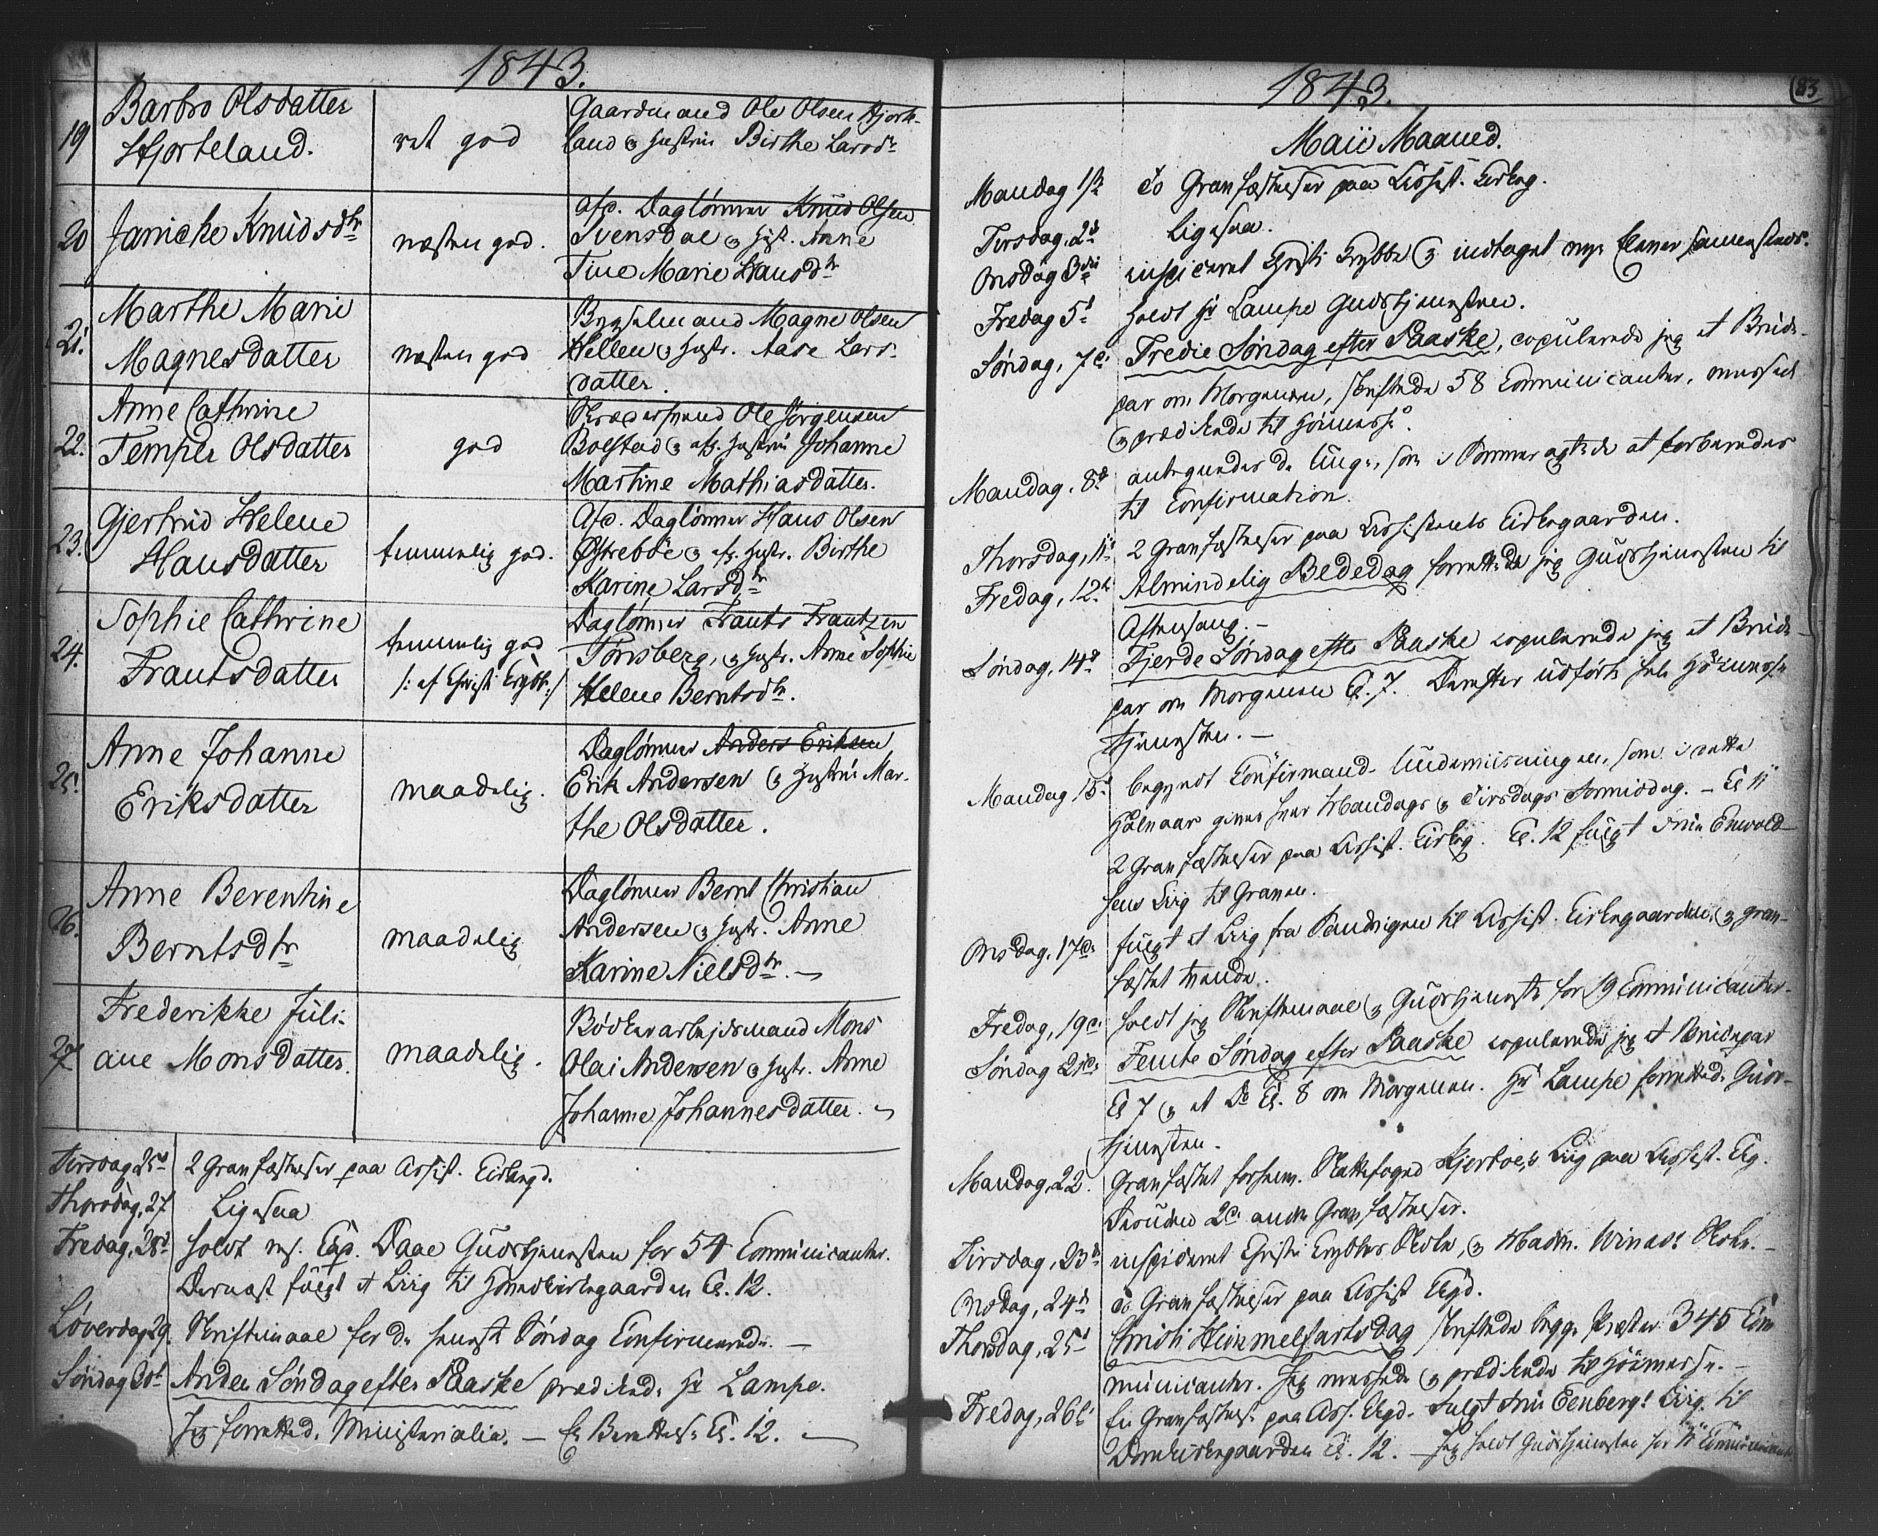 1843.
19 Barbro Olsdatter
Hjorteland.
ret god
Gaardmand Ole Olsen Hjorte-
land & Hustru Birthe Larsdr
20 Janiche Knudsdtr
næsten god.
afd. Daglönner Knud Olsen
Svensdal & Hust. Anne
Tine Marie Hansdtr
21. Marthe Marie
Magnesdatter
næsten god
Magne Olsen
Hellen & Hustr. Aase Lars-
datter.
22. Anne Cathrine
Temper Olsdatter
god
Skrædersvend Ole Jörgensen
Bolstad & afd. Hustru Johanne
Martine Mathiasdatter.
23. Gjertrud Helene
Hansdatter
temmelig god.
Afd. Daglönner Hans Olsen
Østreböe & afd. Hustr. Birthe
Karine Larsdtr
24. Sophie Cathrine
Frantsdatter
temmelig god
/: af Christi Krybb:/
Daglönner Frants Frantzen
Tönsberg, & Hustr. Anne Sophie
Helene Berntsdtr.
25. Anne Johanne
Eriksdatter
maadelig.
Daglönner Anders Eriksen
Erik Andersen & Hustru Mar-
the Olsdatter.
26. Anne Berentine
Berntsdtr
maadelig
Daglönner Bernt Christian
Andersen & Hustr. Anne
Karine Nielsdtr. —
27 Frederikke Juli-
ane Monsdatter.
maadelig.
Bödkerarbejdsmand Mons
Olai Andersen & Hustr. Anne
Johanne Johannesdatter.
Tirsdag 25d 2 Gravfæstelser paa Assist. Kirkegd.
Thorsdag, 27 Ligesaa
Fredag, 28d holdt Cap. Daae Gudstjenesten for 54 Communicanter.
Dernæst fulgt et Liig til Kl. 12.
Löverdag 29. Skriftemaal for de Söndag Confirmerede. —
Söndag 30t Anden Söndag efter Paaske prædikede Hr Lampe.
Jeg forrettede Ministerialia. — Kl. 12. —
1843.
83
Maii Maaned.
Mandag 1ste to Gravfæstelser paa Assist. Kirkeg.
Tirsdag, 2d Ligesaa.
Onsdag 3die inspiceret Christi Krybbe & indtaget nye Elever
Fredag 5t holdt Hr Lampe Gudstjenesten.
Söndag, 7de Tredie Söndag efter Paaske, copulerede jeg et Brude-
par om Morgenen, skriftede 58 Communicanter, messede
& prædikede til Höimesse.
Mandag. 8d de Unge, som i Sommer agtede at forberedes
til Confirmation.
Thorsdag, 11te 2 Gravfæstelser paa Assistents Kirkegaarden.
Fredag, 12te Almindelig Bededag forrettede jeg Gudstjenesten til
Aftensang. —
Söndag, 14d Fjerde Söndag efter Paaske copulerede jeg et Brude-
par om Morgenen Kl. 7. Derefter udförte hele Höimesse
tjenesten. —
Mandag 15d begyndt Confirmand-Underviisningen, som i dette
Halvaar gives hver Mandags & Tirsdags Formiddag. — Kl 11
2 Gravfæstelser paa Assist. Kirkeg. Kl. 12 fulgt Enevold-
sens Liig til Graven.
Onsdag, 17de fulgt et Liig fra Sandvigen til Assist. Kirkegaarden, & grav-
fæstet
Fredag, 19de holdt jeg Skriftemaal & Gudstjeneste for 19 Communicanter.
Söndag 21de Femte Söndag efter Paaske copulerede jeg et Brudepar
Kl 7 & et Do Kl. 8 om Morgenen. Hr Lampe forrettede Guds-
tjenesten.
Mandag, 22. Gravfæstet forhenv. Slottsfoged Kjerboe's Liig paa Assist. Kg.
Desuden 2de andre Gravfæstelser.
Tirsdag, 23d inspiceret Christi Krybbes Skole, & Madm. Skole. —
Onsdag, 24d to Gravfæstelser paa Assist Kgd.
Thorsdag, 25d Christi Himmelfartsdag skriftede begge Præster 345 Com-
municanter. Jeg messede & prædikede til Höimesse. —
Fredag, 26de En Gravfæstelse paa Ass. Kgd. fulgt Liig til
Domkirkegaarden Kl. 12. — Jeg holdt Gudstjenesten for 11 Communicanter